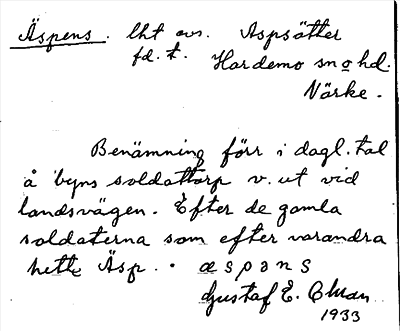 Äspens. lht avs. Aspsätter
fd. t. Hardemo sn o hd.
Närke.
Benämning förr i dagl. tal
å byns soldattorp v. ut vid
landsvägen. Efter de gamla
soldaterna som efter varandra
hette Äsp. · æspəns
Gustaf E. Ohman
1933